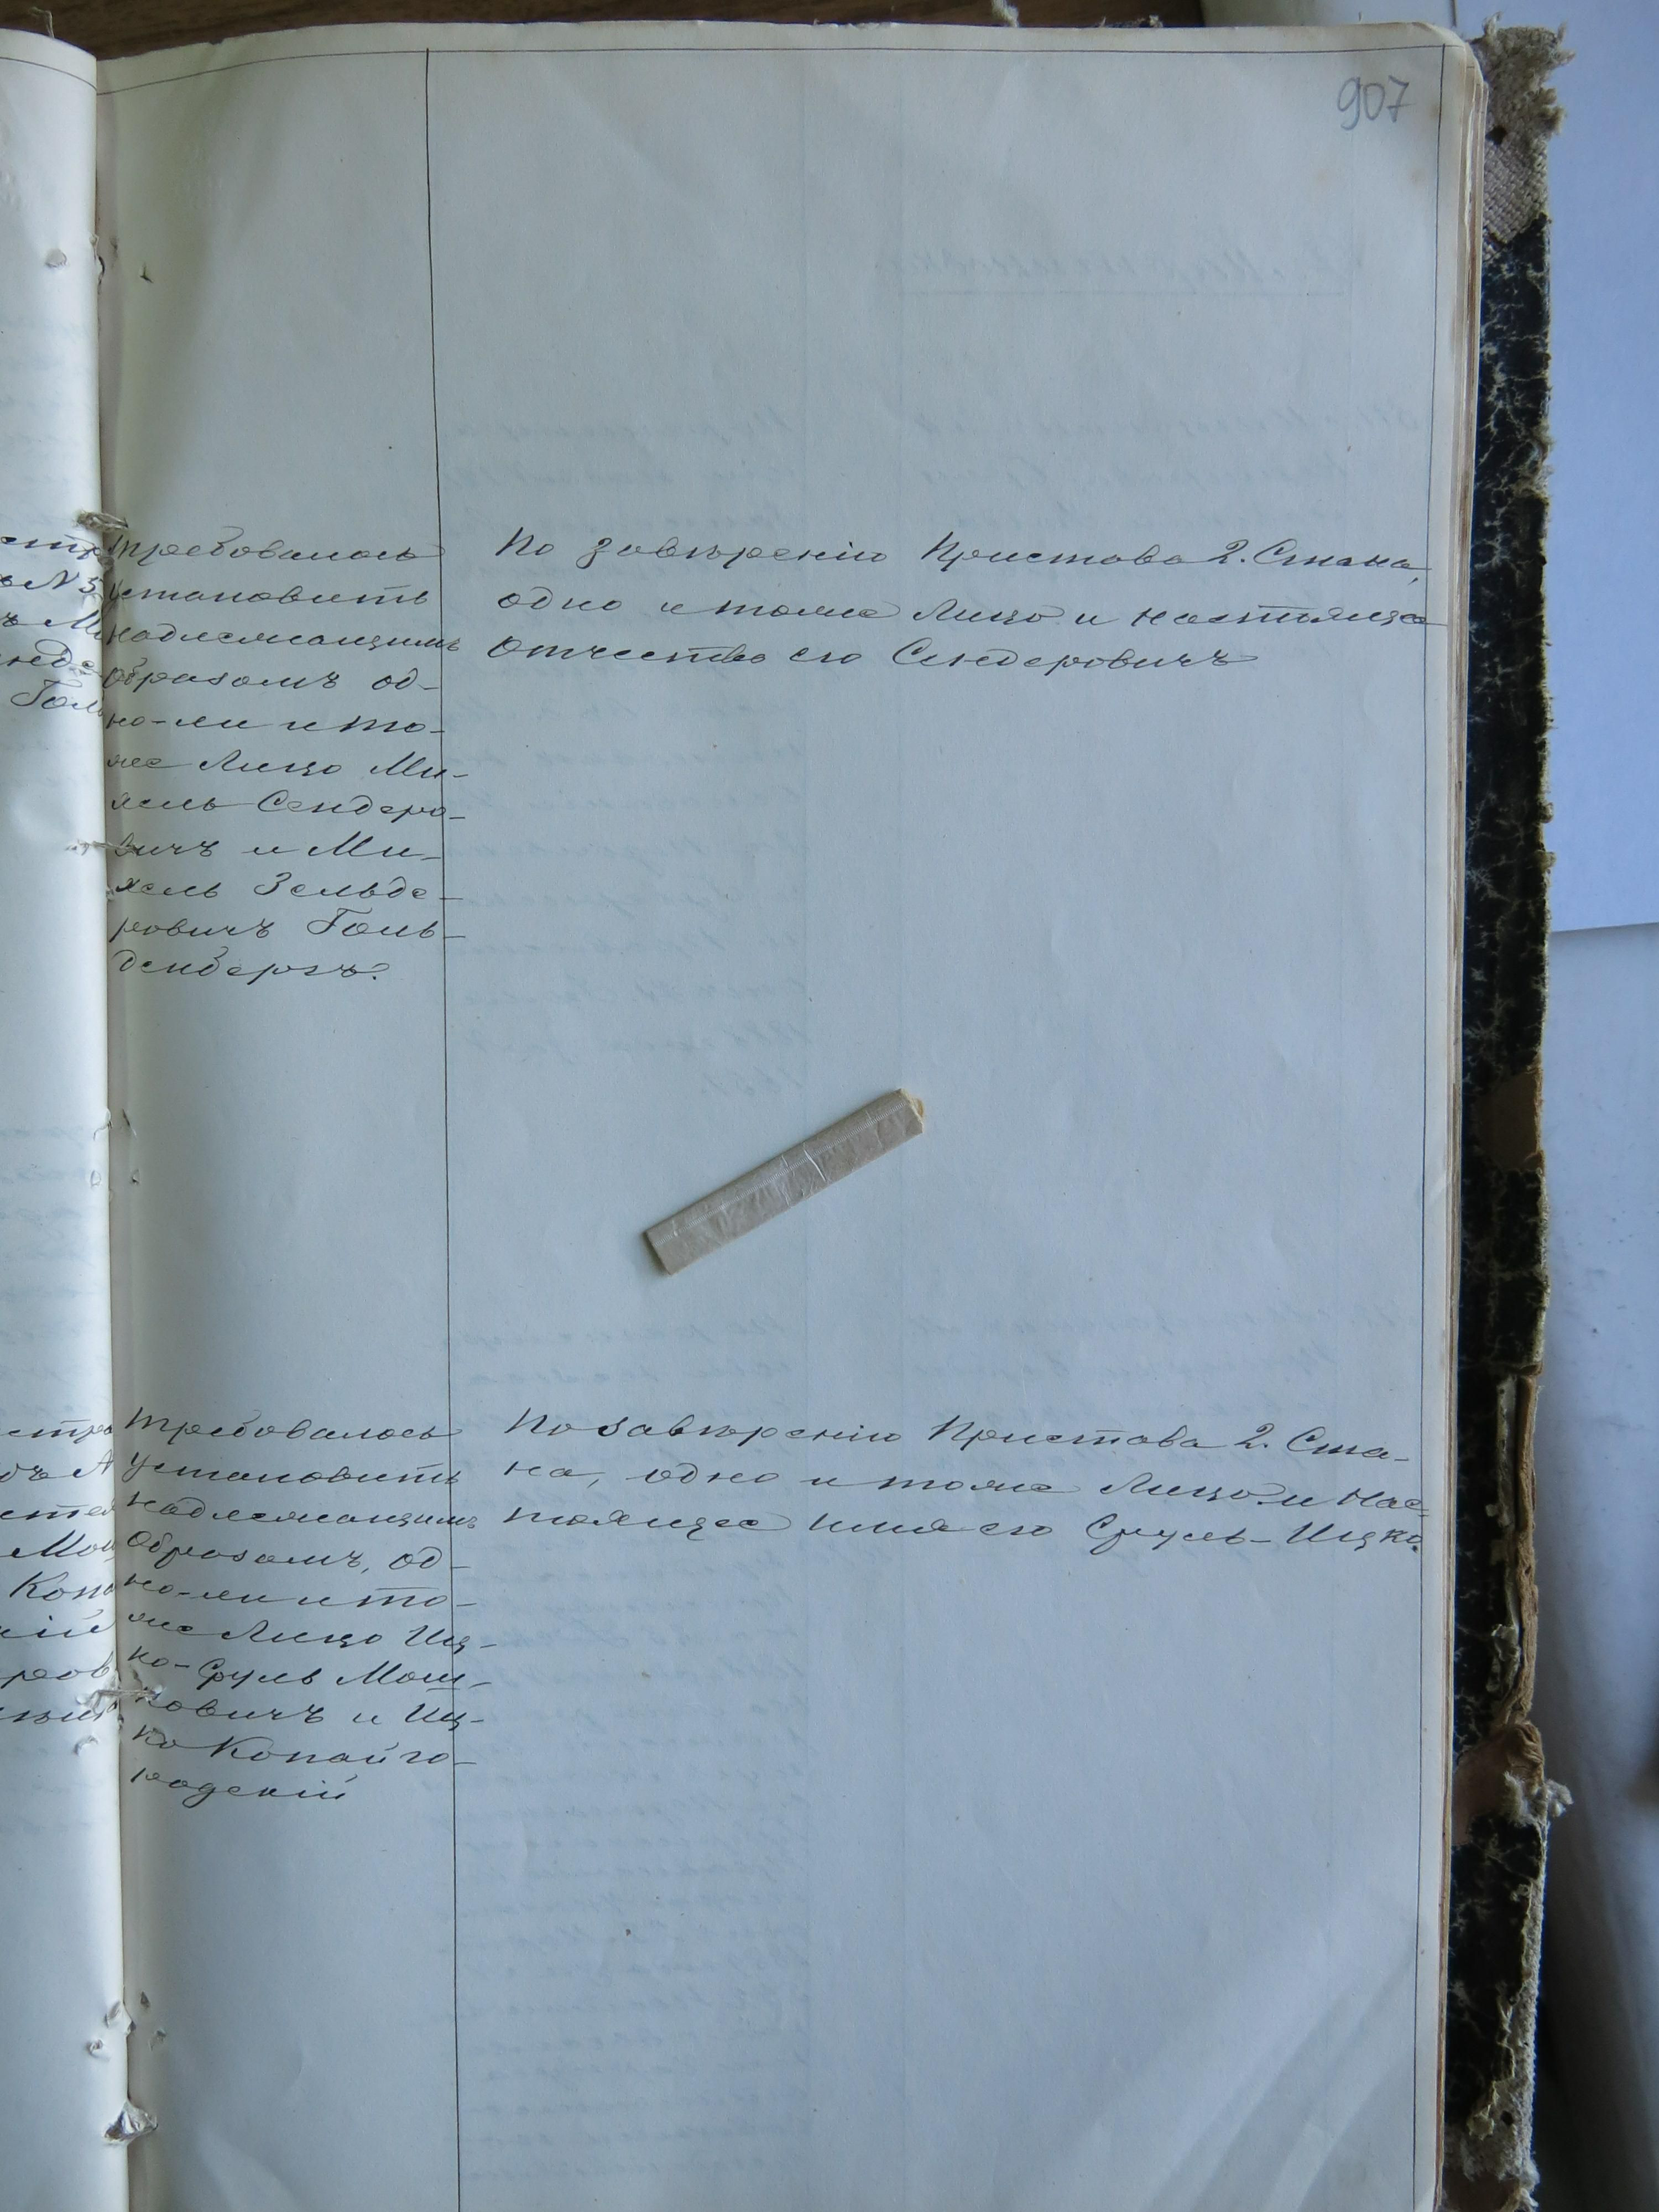 907
Требовалось
установить
надлежащимъ
образомъ од-
но-ли и то-
же лицо Ми-
хель Сендеро-
вичъ и Ми-
хель Зельде-
ровичъ Голь-
денбергъ?
По завѣренію Пристава 2. Стана,
одно и тоже лицо и настоящее
отчество его Сендеровичъ
Требовалось
установить
надлежащимъ
образомъ, од-
но-ли и то-
же лицо Иц-
ко-Сруль Мош-
ковичъ и Иц-
ко Копайго-
родскій
По завѣренію Пристава 2. Ста-
на, одно и тоже лицо и нас-
тоящее имя его Сруль-Ицко.